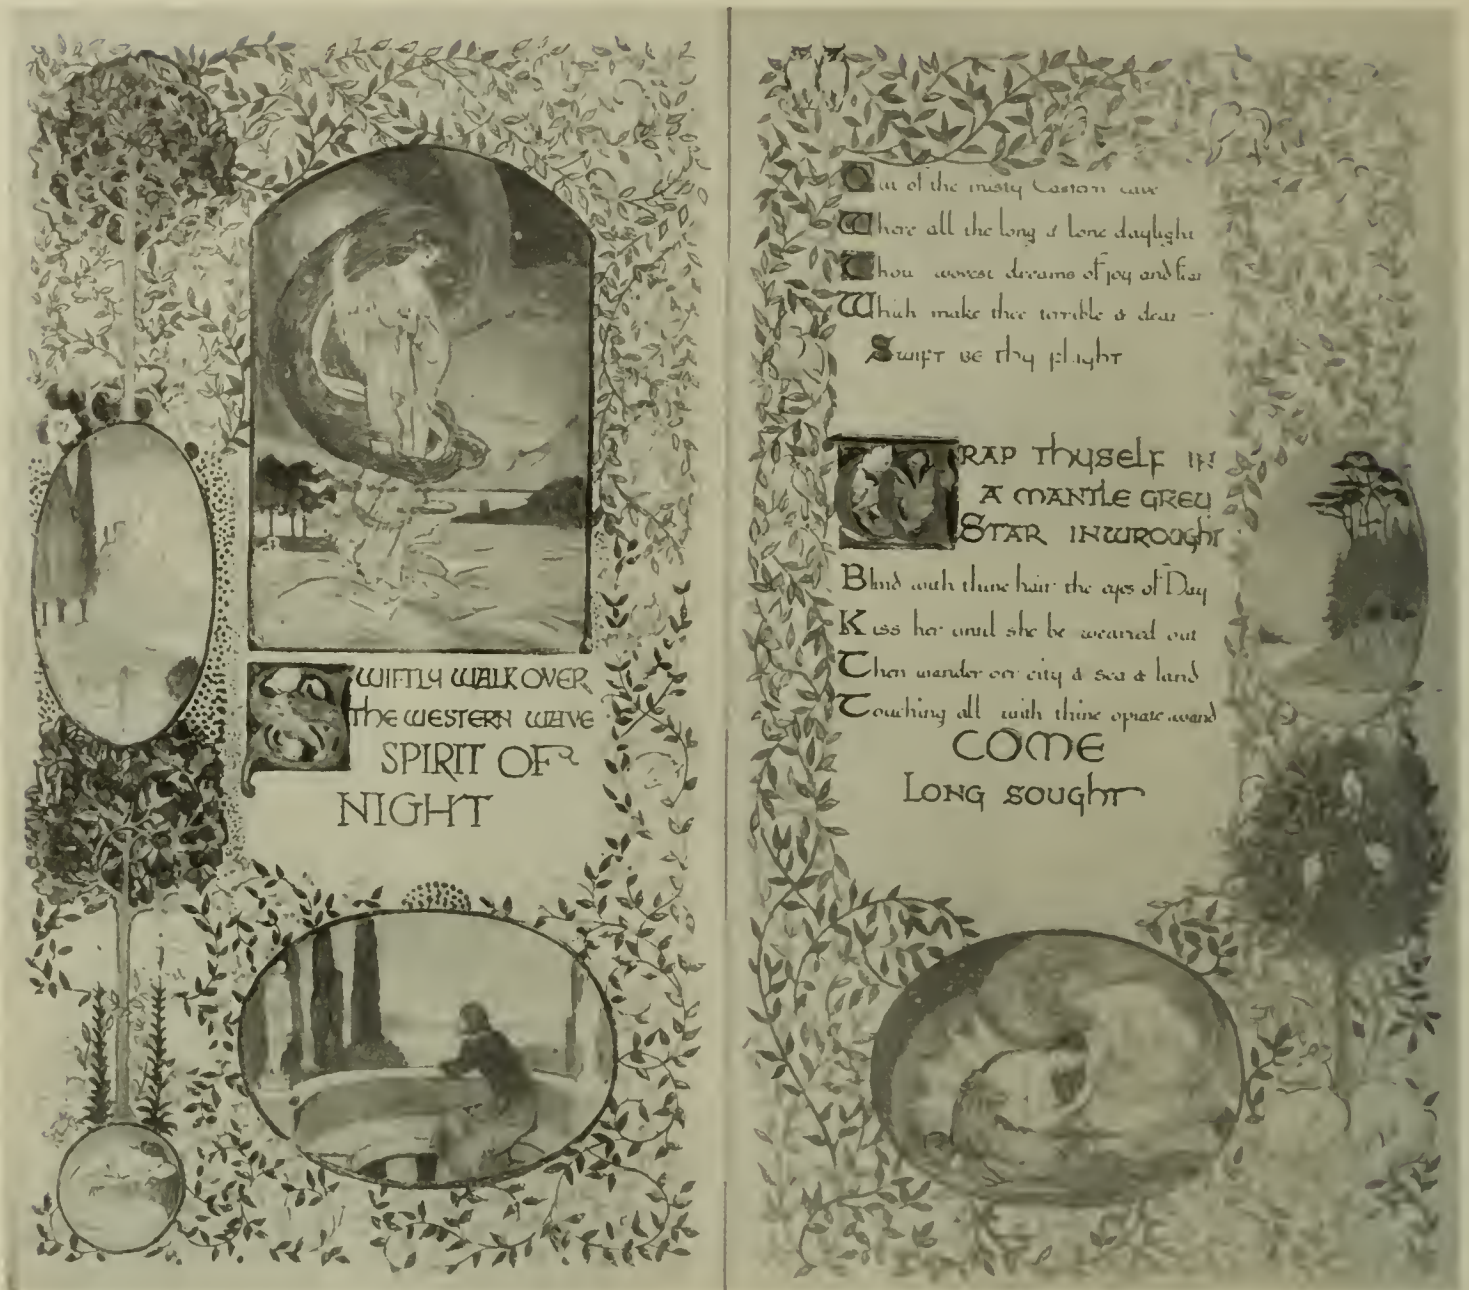 SWIFTLY WALK OVER
THE WESTERN WAVE
SPIRIT OF
NIGHT
Out of the misty Eastern cave
Where all the long & lone daylight
Thou wovest dreams of joy and fear
Which make thee terrible & dear —
SWIFT BE thy flight
WRAP ThySELF IN
A MANTLE GREY
STAR INWROUGHT
Blind with thine hair the eyes of Day
Kiss her until she be wearied out
Then wander oer city & sea & land
Touching all with thine opiate wand
COME
LONG SOUGHT